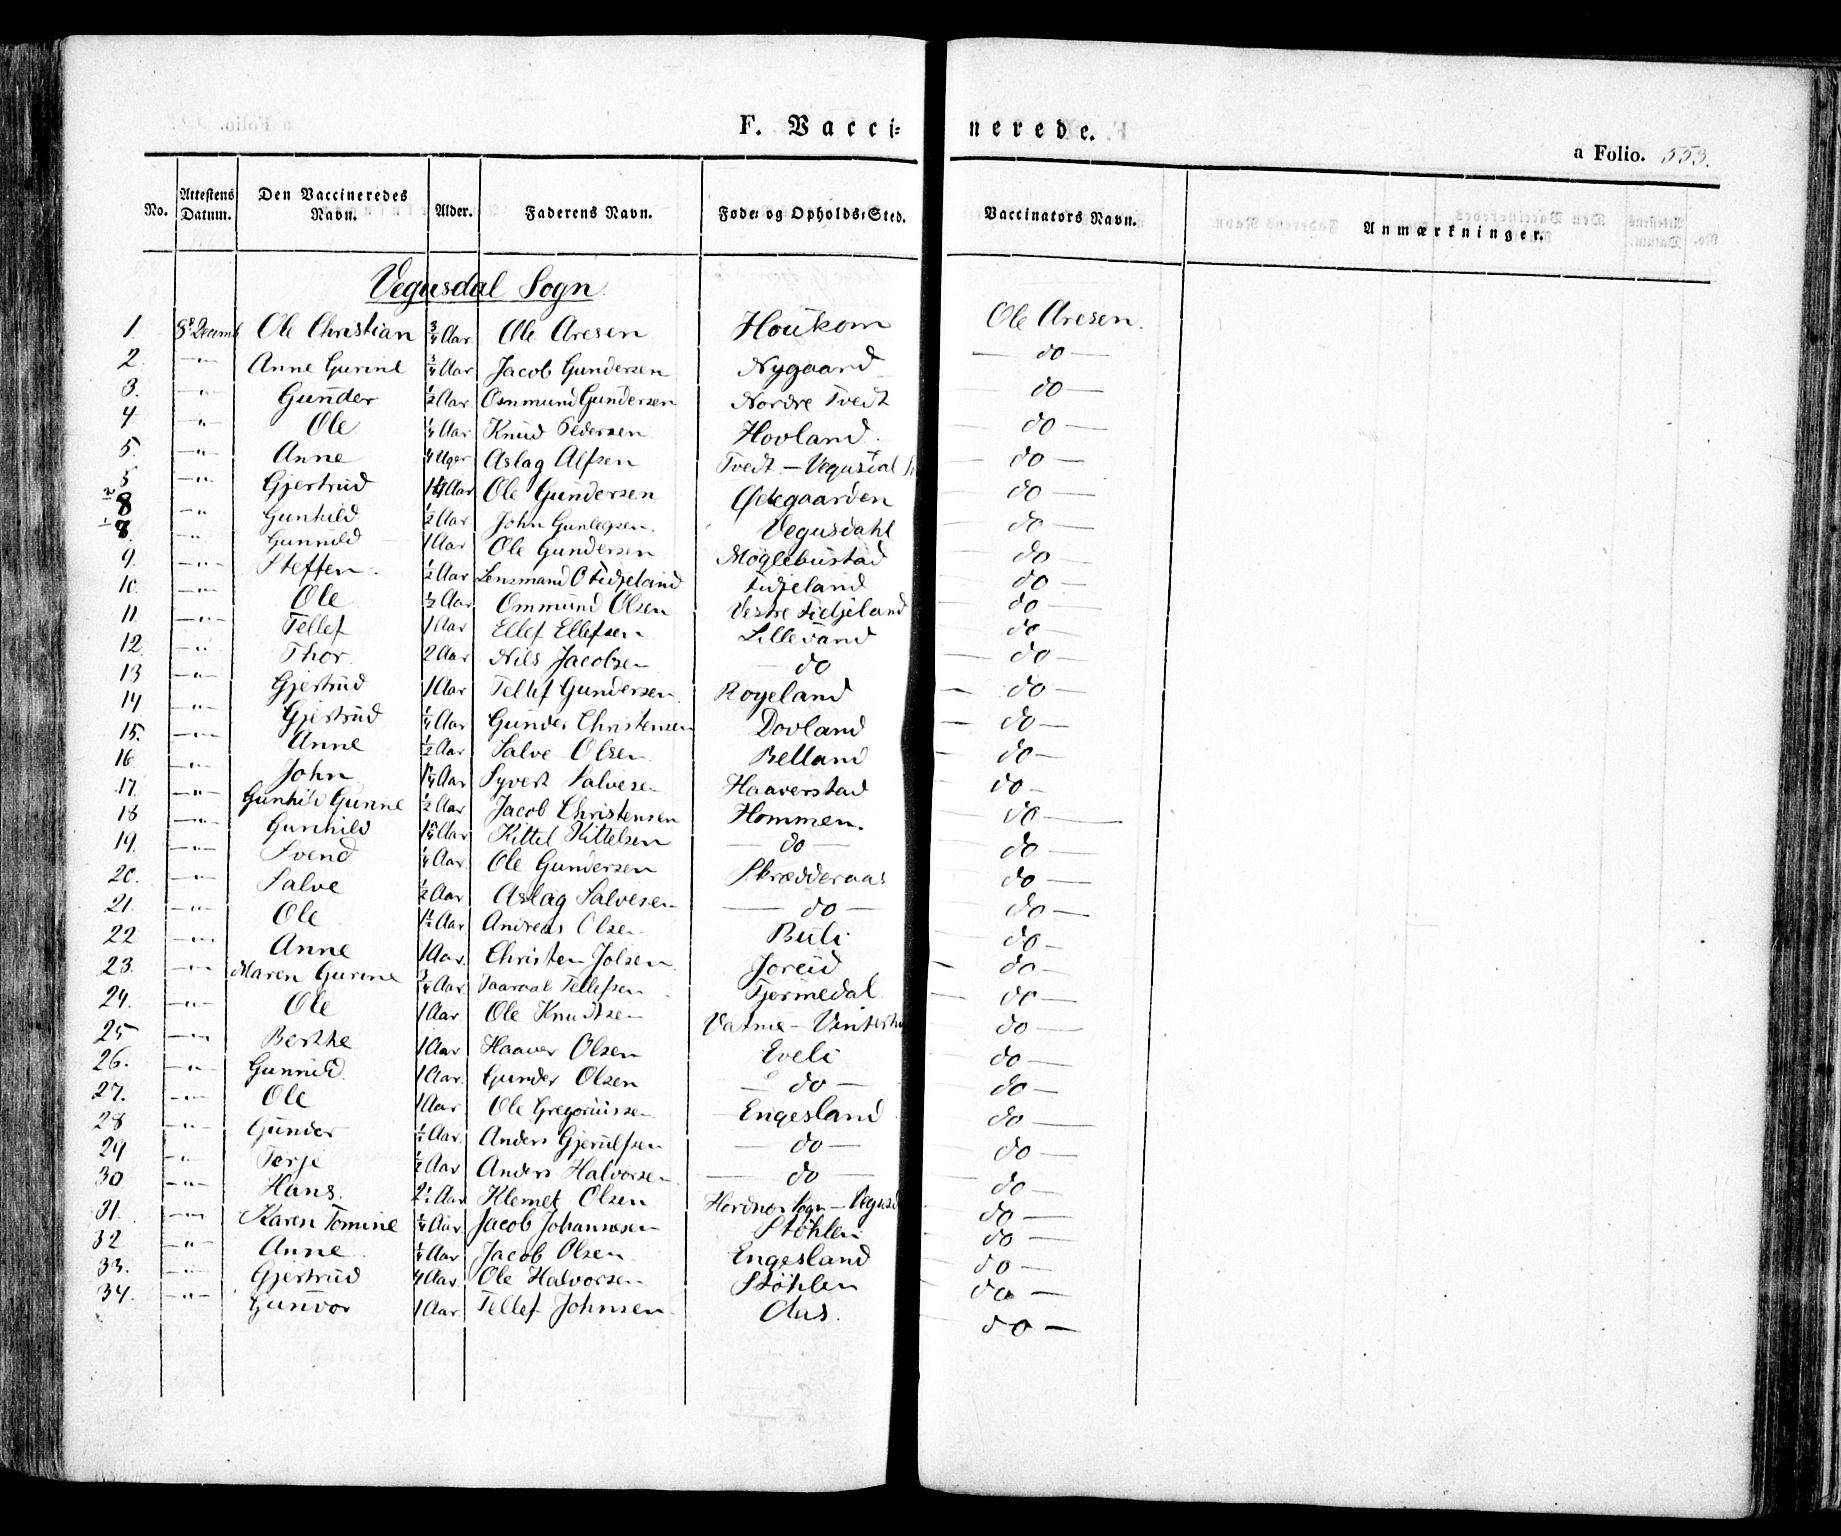 F. Vacci- nerede.
a Folio. 553.
No. Attestens Datum. Den Vaccineredes Navn. Alder. Faderens Navn. Føde- og Opholds-Sted. Vaccinators Navn. Anmærkninger.
Vegusdal Sogn
1. 8de Decemb Ole Christian 3/4 Aar Ole Aresen Houkom Ole Aresen.
2. —"— Anne Gurine 3/4 Aar Jacob Gundersen Nygaard — do —
3. —"— Gunder 1/2 Aar Osmund Gundersen Nordre Tvedt — do —
4 —"— Ole 1/4 Aar Knud Pedersen Hovland. — do —
5. —"— Anne 4 Uger Aslag Alfsen Tvedt — Vegusdal — do —
5 —"— Gjertrud Aar Ole Gundersen Ødegaarden — do —
8 —"— Gunhild 1/2 Aar John Gunlegsen. Vegusdahl — do —
8. —"— Gunnild 1 Aar Ole Gundersen Møglebustad — do —
9. —"— Steffen 1/2 Aar Lensmand O Fidjeland Fidjeland — do —
10. —"— Ole 1/2 Aar Ommund Olsen Vestre Fidjeland — do —
11. —"— Tellef 1 Aar Ellef Ellefsen Lillevand — do —
12. —"— Thor 2 Aar Nils Jacobsen — do — do —
13 —"— Gjertrud 1 Aar Tellef Gundersen Rogeland — do —
14 —"— Gjertrud 1/4 Aar Gunder Christensen Dovland — do —
15. —"— Anne 1/2 Aar Salve Olsen Belland — do —
16 —"— John Aar Syvert Salvesen Haaverstad do —
17. —"— Gunhild Gurine 1/2 Aar Jacob Christensen Hommen. — do —
18 —"— Gunhild Aar Kittel Kittelsen — do — do —
19. —"— Svend 1/4 Aar Ole Gundersen Skrædderaas — do —
20. —"— Salve 1/2 Aar Aslag Salvesen — do — do —
21. —"— Ole Aar Andreas Olsen Buli do —
22 —"— Anne 1 Aar. Christen Jolsen Joreid — do —
23. —"— Maren Gurine 3/4 Aar. Taaraal Tellefsen Tjermedal — do —
24. —"— Ole 1 Aar Ole Knudsen Vatne — do —
25 —"— Berthe 1 Aar Haaver Olsen Eveli do —
26. —"— Gunnild. 1 Aar. Gunder Olsen — do — do —
27. —"— Ole 1 Aar Ole Gregoriussen Engesland do —
28 —"— Gunder Aar. Anders Gjerulfsen — do — do —
29 —"— Terje 1/2 Aar Anders Halvorsen — do — do —
30 —"— Hans. Aar Klemet Olsen Hordnes Sogn — Vegusd — do —
31. —"— Karen Tomine Aar Jacob Johannesen Støhlen — do —
32 —"— Anne Aar Jacob Olsen Engesland do —
33. —"— Gjertrud 4 Aar. Ole Halvorsen Støhlen do —
34. —"— Gunvor 1 Aar Tellef Johnsen Aas. do —